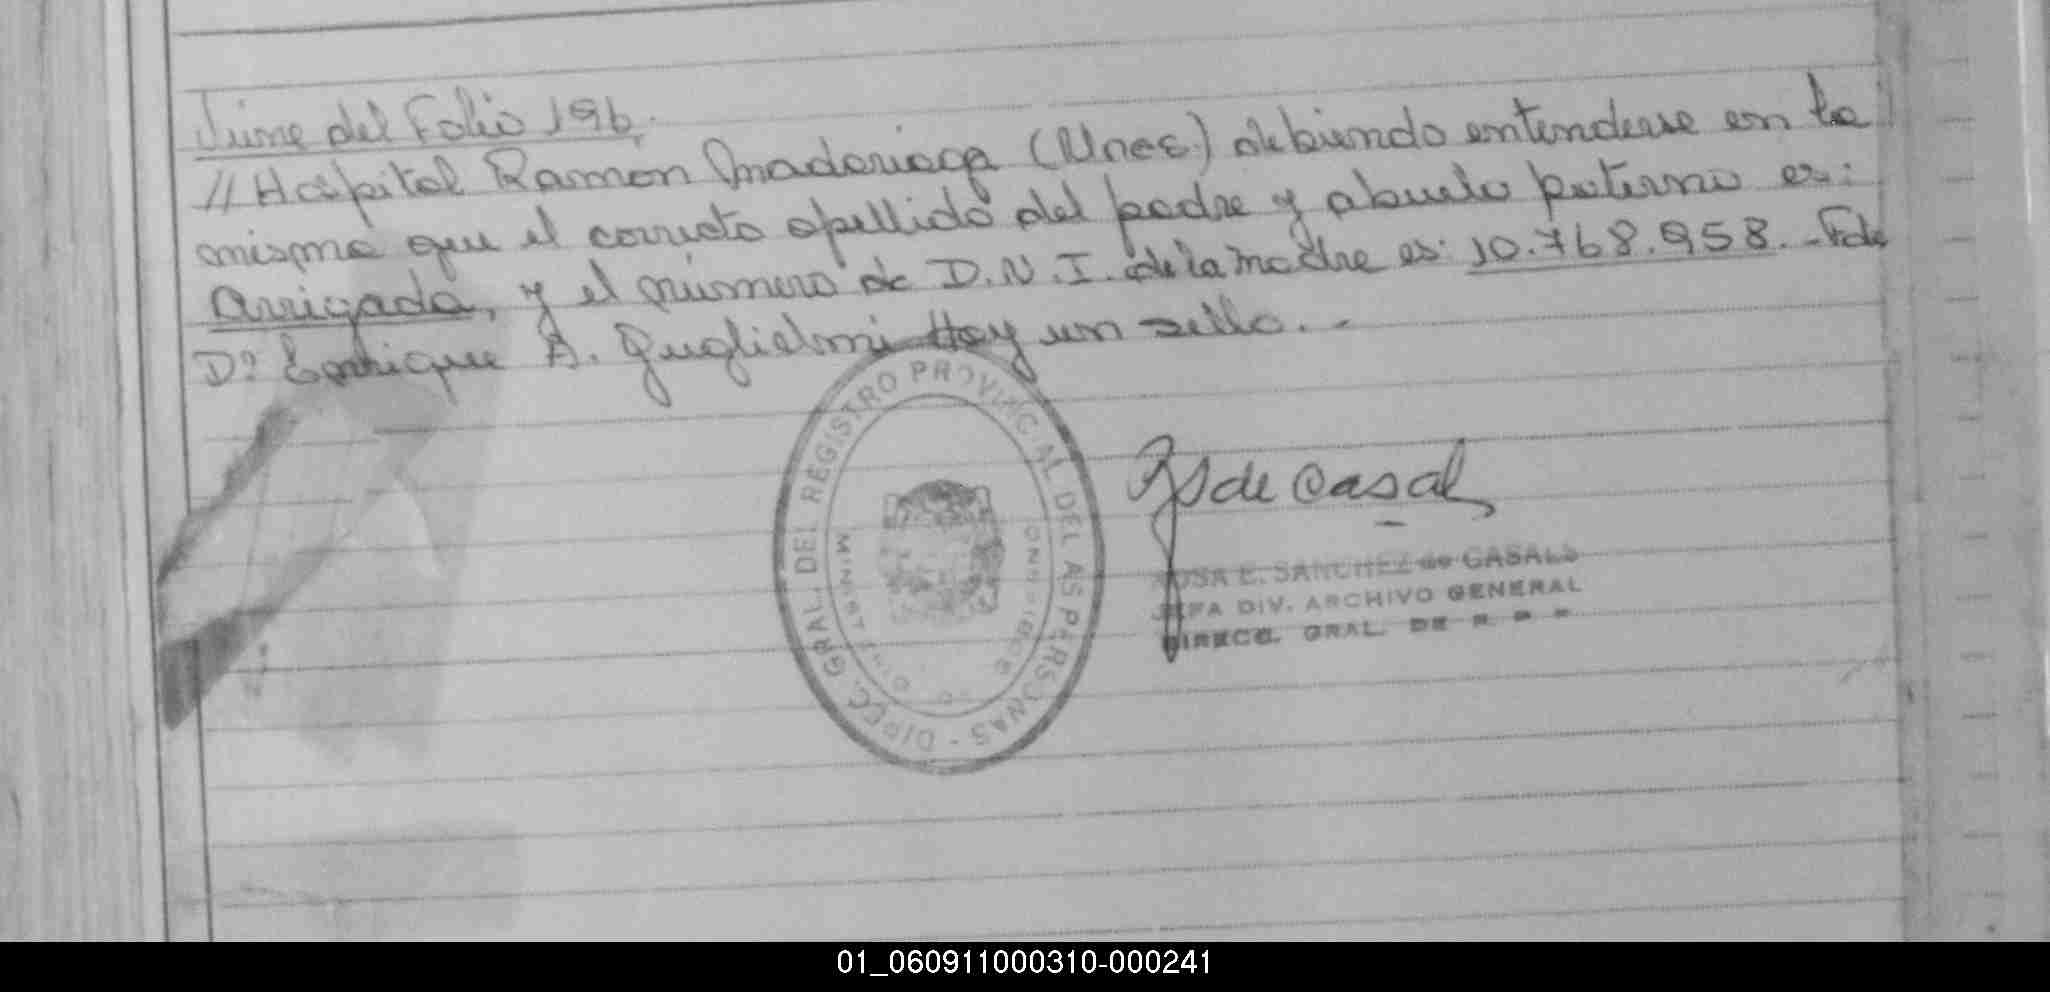 Viene del Folio 196.
// Hospital Ramón Madariaga (Mnes.) debiendo entenderse en la
misma que el correcto apellido del padre y abuelo paterno es:
Arrigada, y el número de D.N.I. de la madre es: 10.768.958. - Fdo
Dº Enrique A. Guglielmi Hay un sello. -
DIREC. GRAL. DEL REGISTRO PROVINCIAL DE LAS PERSONAS
MINISTERIO DE GOBIERNO
de Casal
ROSA E. SANCHEZ de CASALS
JEFA DIV. ARCHIVO GENERAL
DIRECC. GRAL. DE R P P
01_060911000310-000241